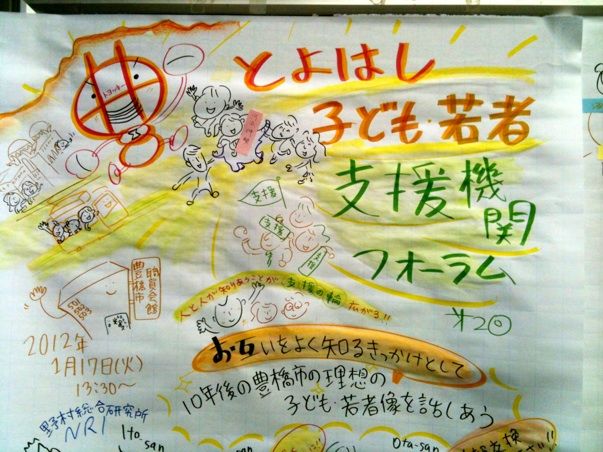 とよはし
子ども・若者
支援機関
フォーラム
トヨッキー
支援
支援
支援
人と人が知りあうことが、支援の輪 広がる!!
豊橋市
職員会館
2012年
1月17日(火)
13:30〜
お互いをよく知るきっかけとして
10年後の豊橋市の理想の
子ども・若者像を話しあう
野村総合研究所
NRI
Ito-san
Ota-san